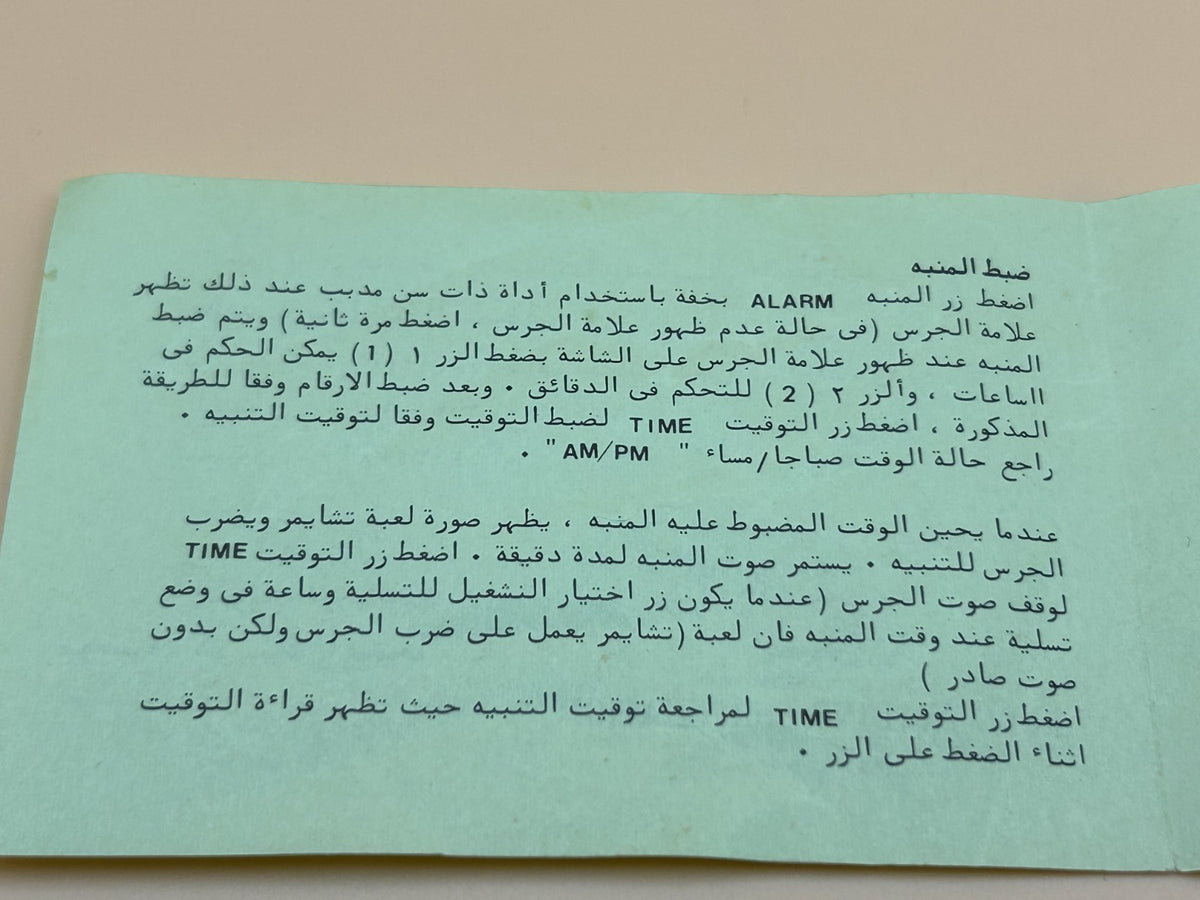 ضبط المنبه
اضغط زر المنبه ALARM بخفة باستخدام أداة ذات سن مدبب عند ذلك تظهر
علامة الجرس (فى حالة عدم ظهور علامة الجرس ، اضغط مرة ثانية) ويتم ضبط
المنبه عند ظهور علامة الجرس على الشاشة بضغط الزر ١ (1) يمكن الحكم فى
ااساعات ، وألزر ٢ (2) للتحكم فى الدقائق . وبعد ضبط الارقام وفقا للطريقة
المذكورة ، اضغط زر التوقيت TIME لضبط التوقيت وفقا لتوقيت التنبيه .
راجع حالة الوقت صباجا/مساء " AM/PM" .
عندما يحين الوقت المضبوط عليه المنبه ، يظهر صورة لعبة تشايمر ويضرب
الجرس للتنبيه . يستمر صوت المنبه لمدة دقيقة . اضغط زر التوقيت TIME
لوقف صوت الجرس (عندما يكون زر اختيار النشغيل للتسلية وساعة فى وضع
تسلية عند وقت المنبه فان لعبة (تشايمر يعمل على ضرب الجرس ولكن بدون
صوت صادر )
اضغط زر التوقيت TIME لمراجعة توقيت التنبيه حيث تظهر قراءة التوقيت
اثناء الضغط على الزر .